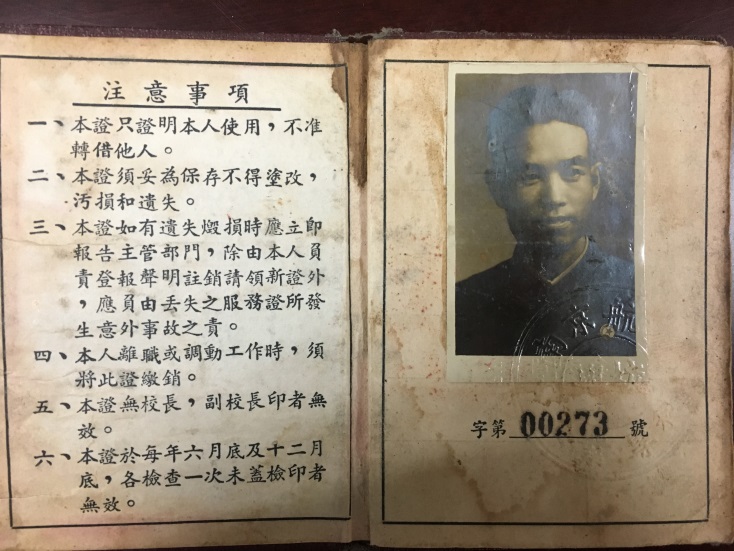 注意事項
一、本證只證明本人使用，不准
轉借他人。
二、本證須妥為保存不得塗改，
汚損和遺失。
三、本證如有遺失燬損時應立即
報告主管部門，除由本人員
責登報聲明註銷請領新證外
，應員由丢失之服務證所發
生意外事故之責。
四、本人離職或調動工作時，須
將此證繳銷。
五、本證無校長，副校長印者無
效。
六、本證於每年六月底及十二月
底，各檢查一次未蓋檢印者
無效。
字第 00273 號